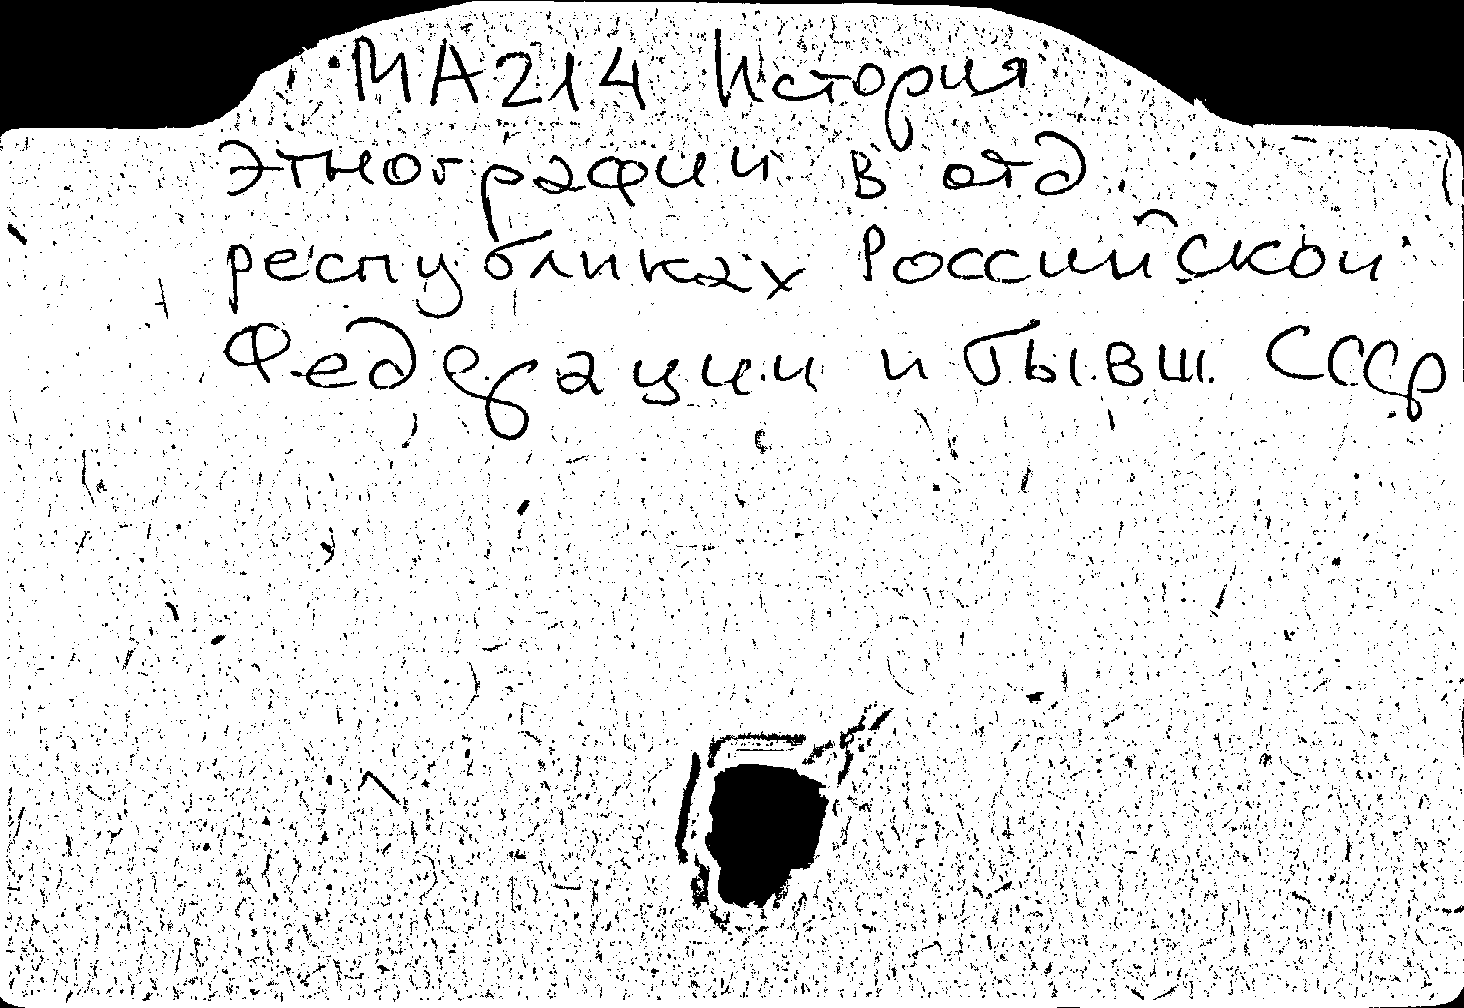 МА214 История
этнографии в отд.
республиках Российской
Федерации и бывш. СССР